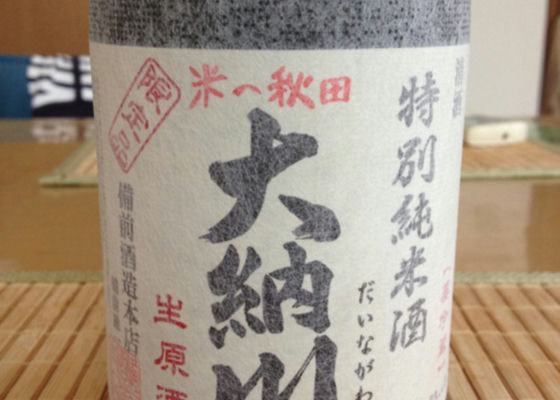 米の秋田
清酒
特別純米酒
大納川
だいながわ
生原酒
備前酒造本店